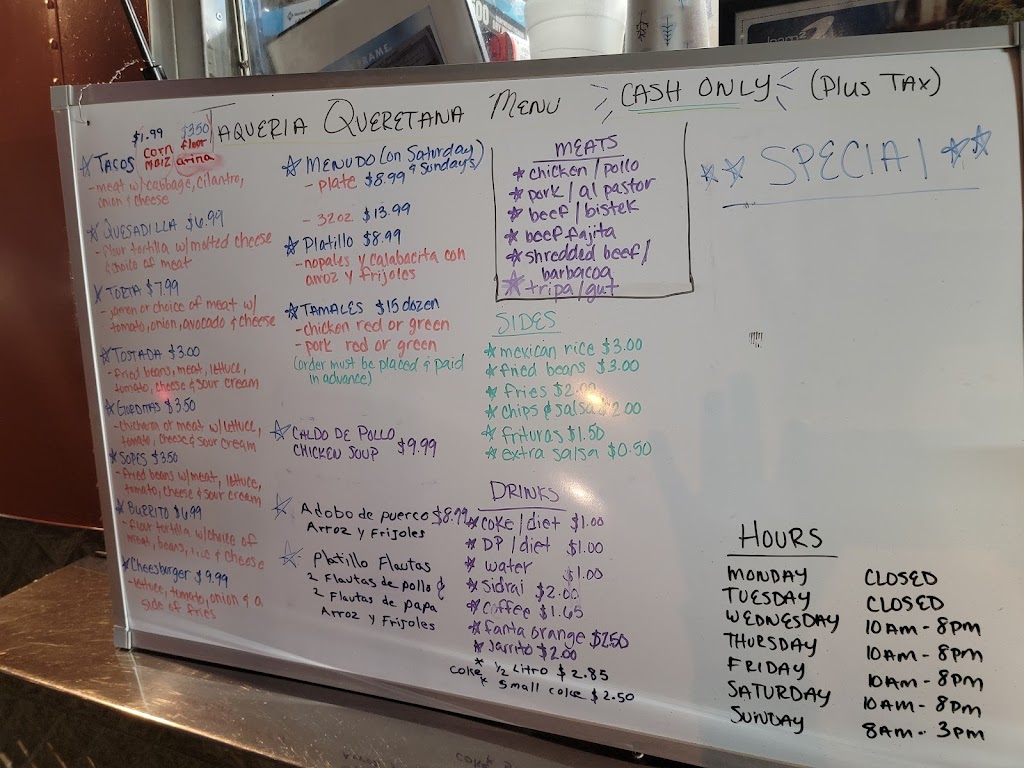 TAQUERIA QUERETANA MENU CASH ONLY (Plus TAX)
$1.99 $3.50
TACOS CORN MAIZ flour arina
- meat w/cabbage, cilantro,
onion & cheese
QUESADILLA $6.99
- flour tortilla w/malted cheese
& choice of meat
TORTA $7.99
- jamon or choice of meat w/
tomato, onion, avocado & cheese
TOSTADA $3.00
- fried beans, meat, lettuce,
tomato, cheese & sour cream
GORDITAS $3.50
- chicharron or meat w/ lettuce,
tomato, cheese & sour cream
SOPES $3.50
- fried beans w/meat, lettuce,
tomato, cheese & sour cream
BURRITO $6.99
- flour tortilla w/choice of
meat, beans, rice & cheese
Cheesburger $9.99
- lettuce, tomato, onion & a
side of fries
MENUDO (on Saturday
& Sundays)
- plate $8.99
- 32oz $13.99
Platillo $8.99
- nopales y calabacita con
arroz y frijoles
TAMALES $15 dozen
- chicken red or green
- pork red or green
(order must be placed & paid
in advance)
CALDO DE POLLO
CHICKEN SOUP $9.99
Adobo de puerco $8.99
Arroz y Frijoles
Platillo Flautas
2 Flautas de pollo &
2 Flautas de papa
Arroz y Frijoles
MEATS
* chicken/pollo
* pork/al pastor
* beef/bistek
* beef fajita
* shredded beef/
barbacoa
* tripa/gut
SIDES
* mexican rice $3.00
* fried beans $3.00
* fries $2.00
* chips & salsa $2.00
* frituras $1.50
* extra salsa $0.50
DRINKS
* coke/diet $1.00
* DP/diet $1.00
* water $1.00
* sidral $2.00
* coffee $1.65
* fanta orange $2.50
* Jarrito $2.00
coke * 1/2 Litro $2.85
* Small coke $2.50
SPECIAL
HOURS
MONDAY CLOSED
TUESDAY CLOSED
WEDNESDAY 10AM - 8PM
THURSDAY 10AM - 8PM
FRIDAY 10AM - 8PM
SATURDAY 10AM - 8PM
SUNDAY 8AM - 3PM